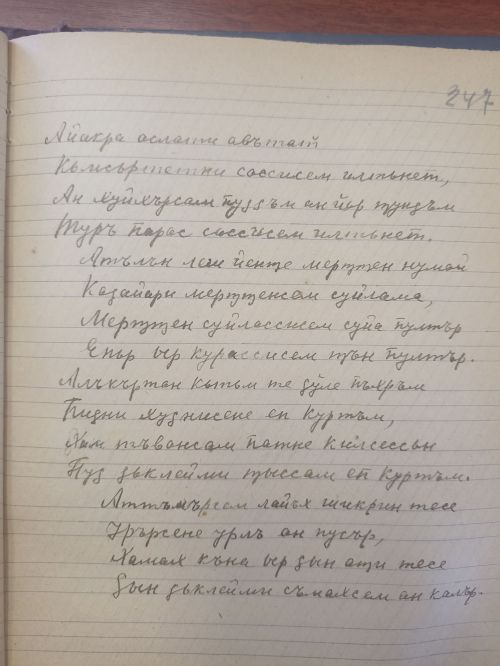 247
Айакра аслати авътат
Кьмсьртетни сассисем илтьнет,
Ан хуйхърсам пуззъм ан йор тундъм
Туръ парас сассисем илтьнет.
Атълън леш йенче мерттен нумай
Казайари мерттенсем суйлама,
Мерттен суйлассисем суйа пултър
Епьр ыр курассисем тън пултър.
Алъкъртан кътьм те зуле пъхръм
Пизни хузнисене еп куртъм,
Хам тъвансам патне килсессьн
Пуз зьклейми тыссам еп куртъм.
Аттъмърсем лайъх шикрин тесе
Урърсене урлъ ан пусър,
Хамах къна ыр зын ати тесе
Зын зьклейми съмахсем ан калър.